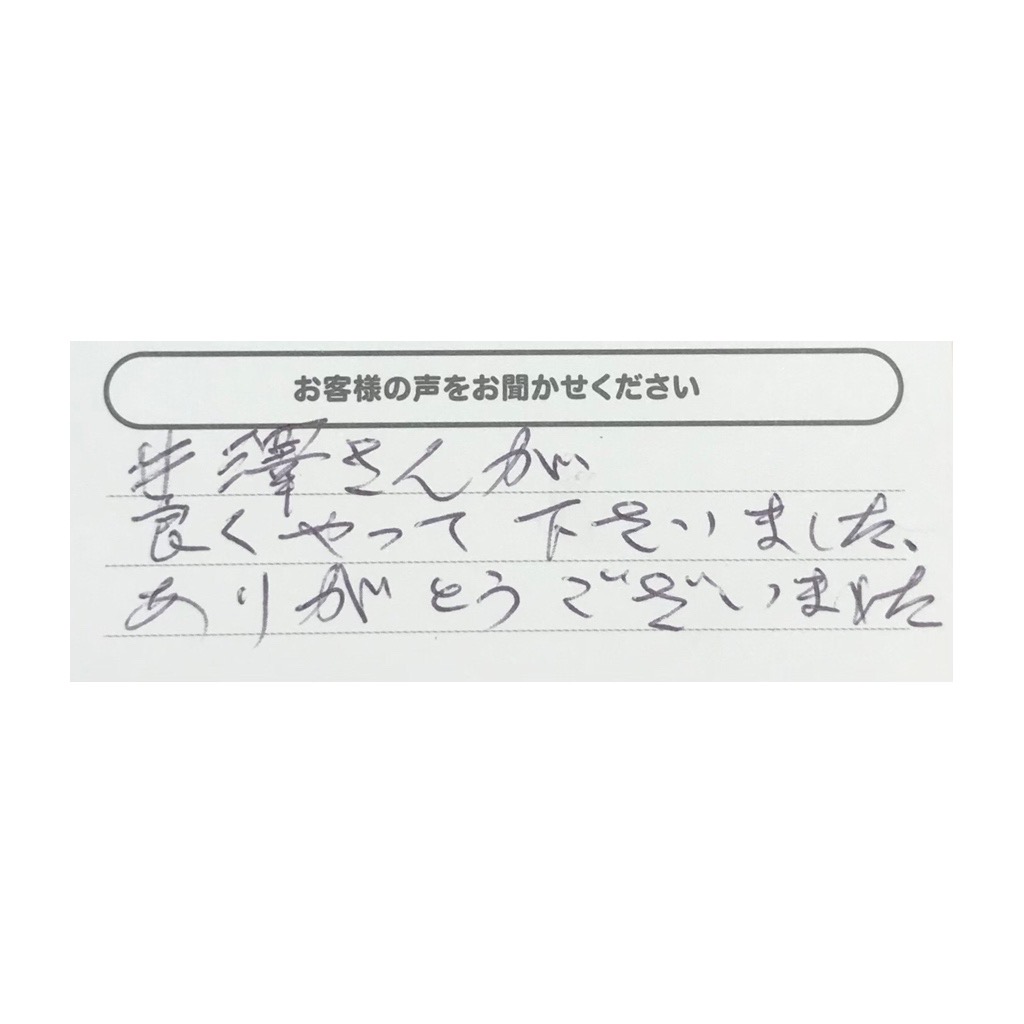 お客様の声をお聞かせください
井澤さんが
良くやって下さいました、
ありがとうございました